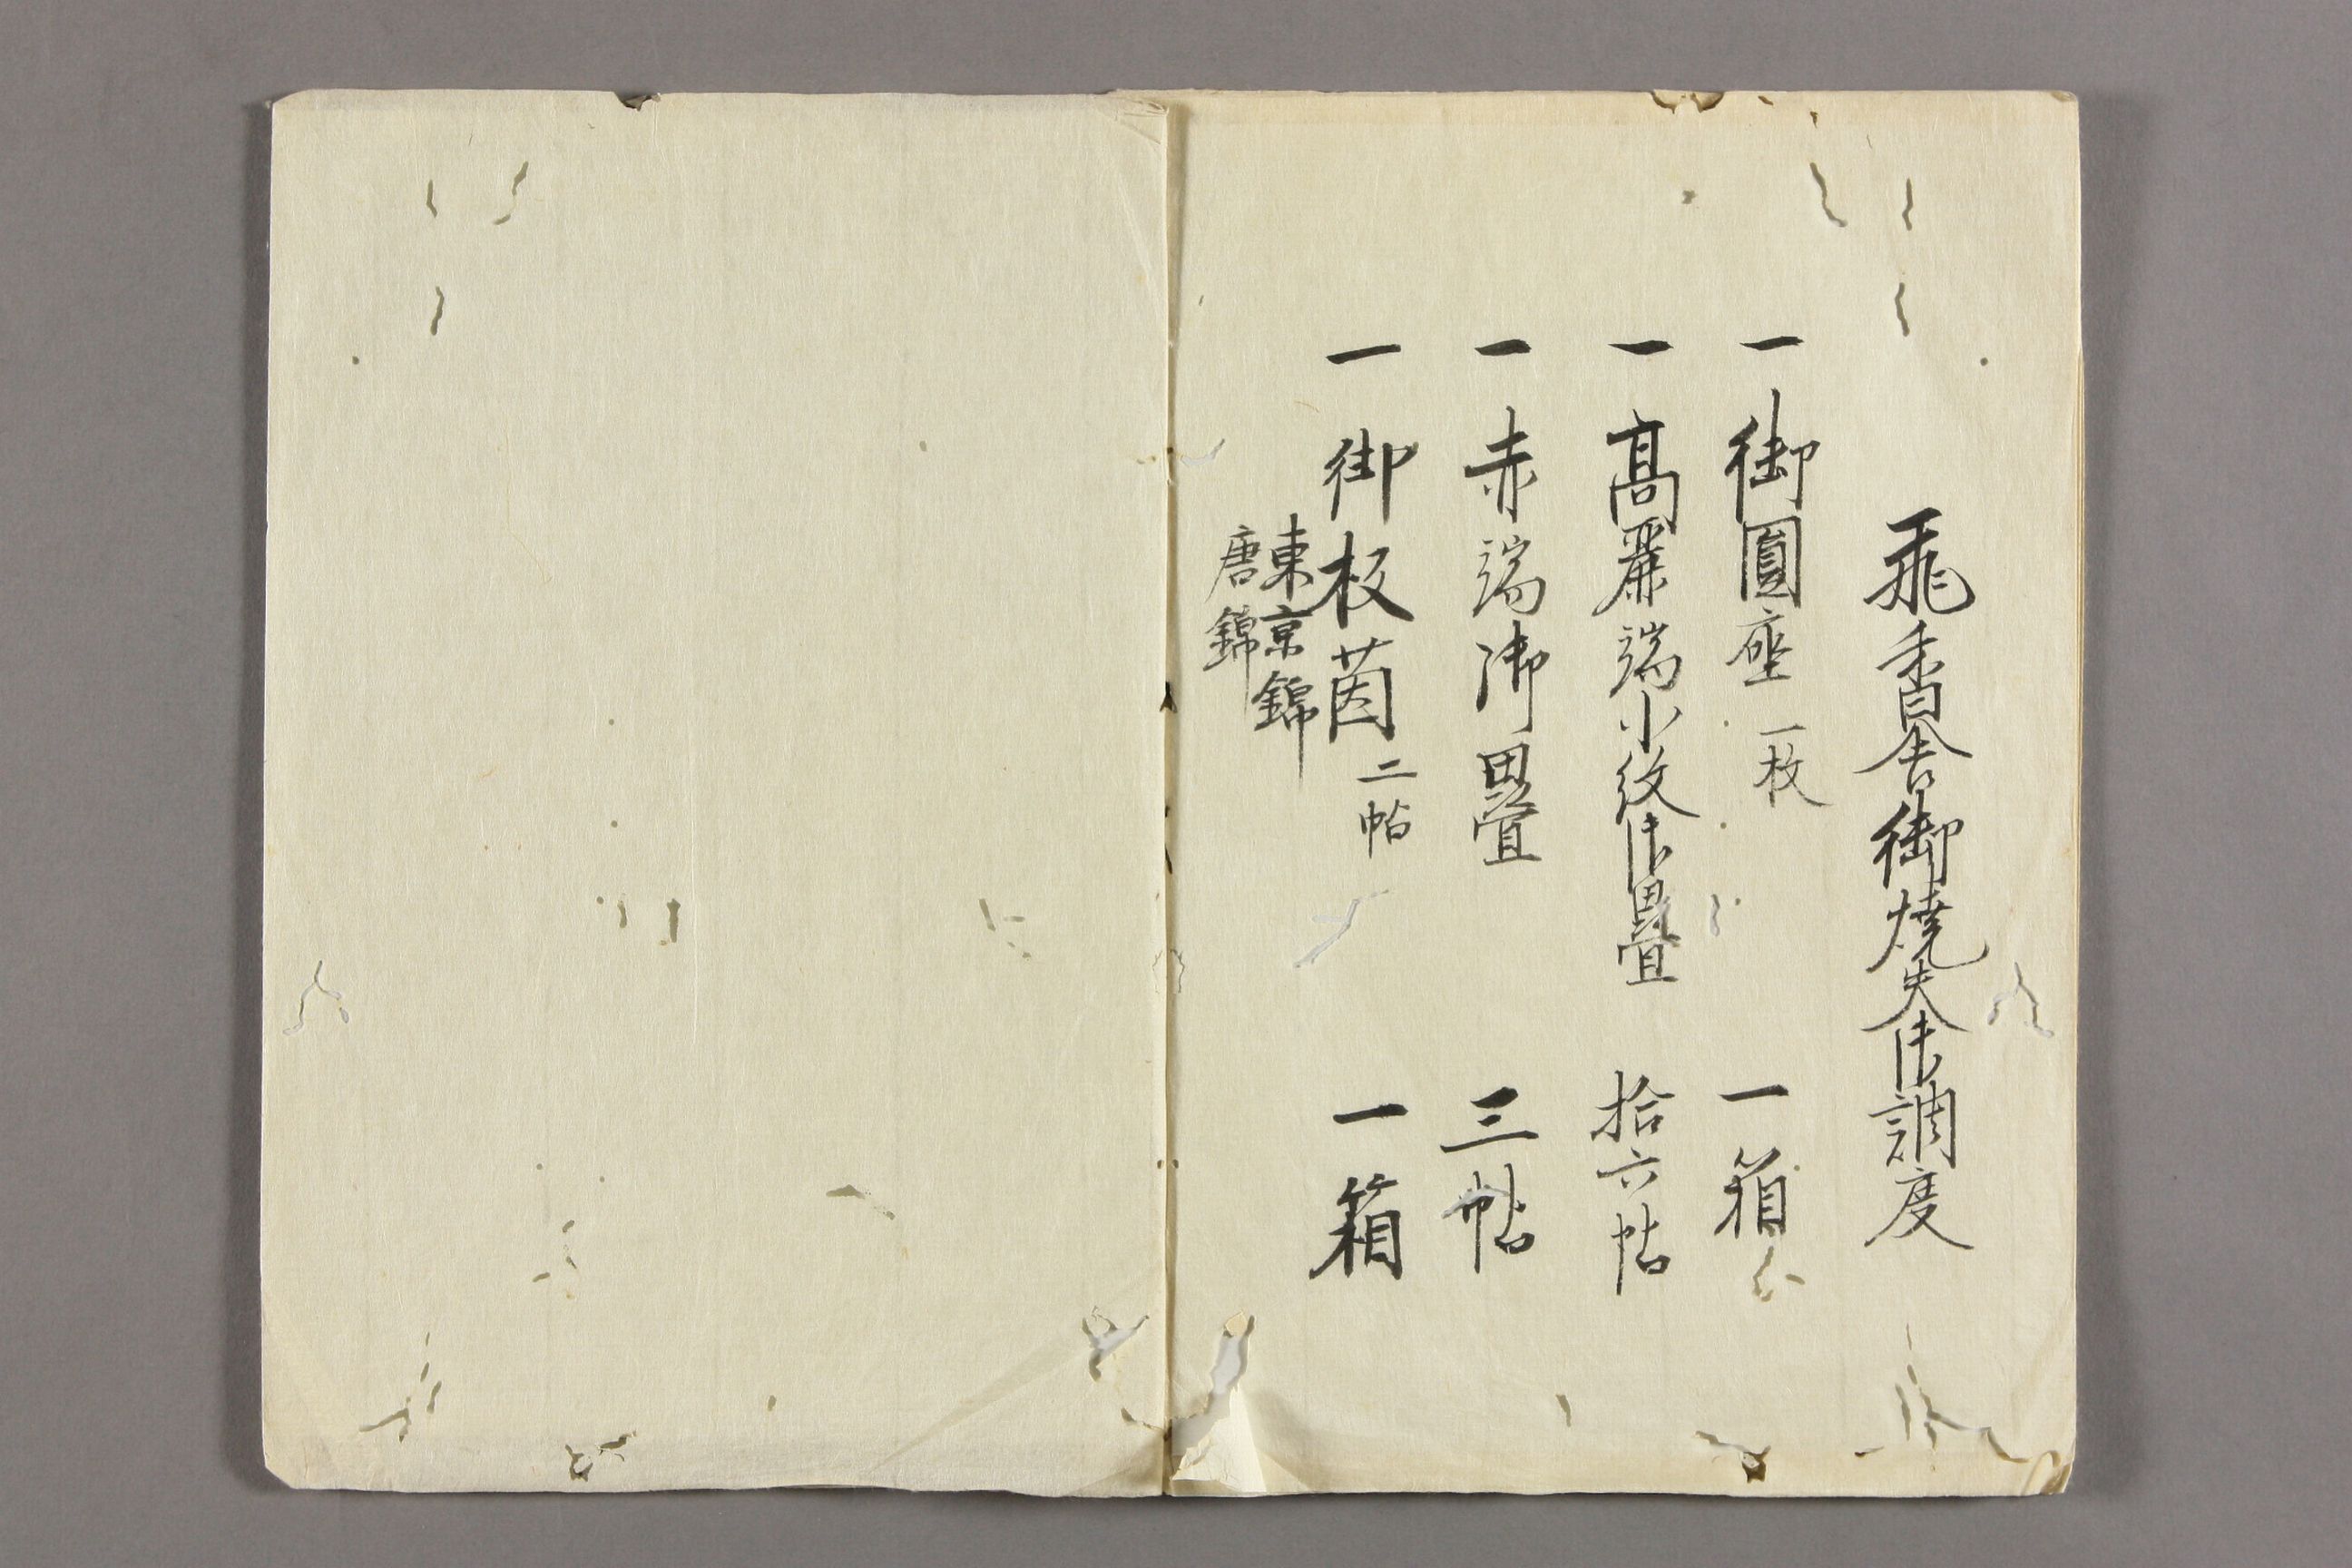 飛香舎御燒失御調度
一御圓座一枚 一箱
一高麗端小紋御疊 拾六帖
一赤端御疊 三帖
一御板茵二帖 一箱
東京錦
唐錦